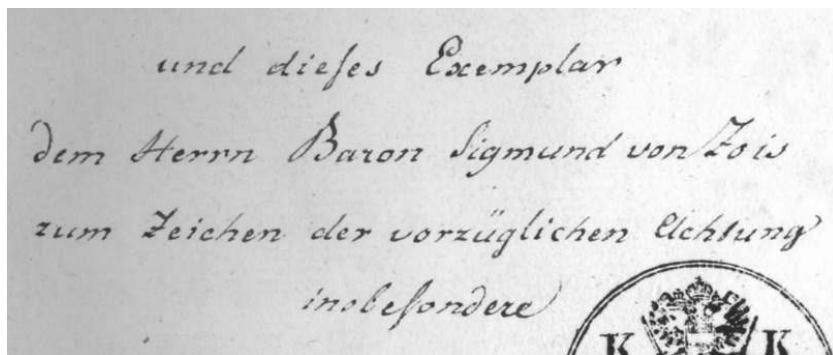 und dieses Exemplar
dem Herrn Baron Sigmund von Zois
zum Zeichen der vorzüglichen Achtung
insbesondere
K K